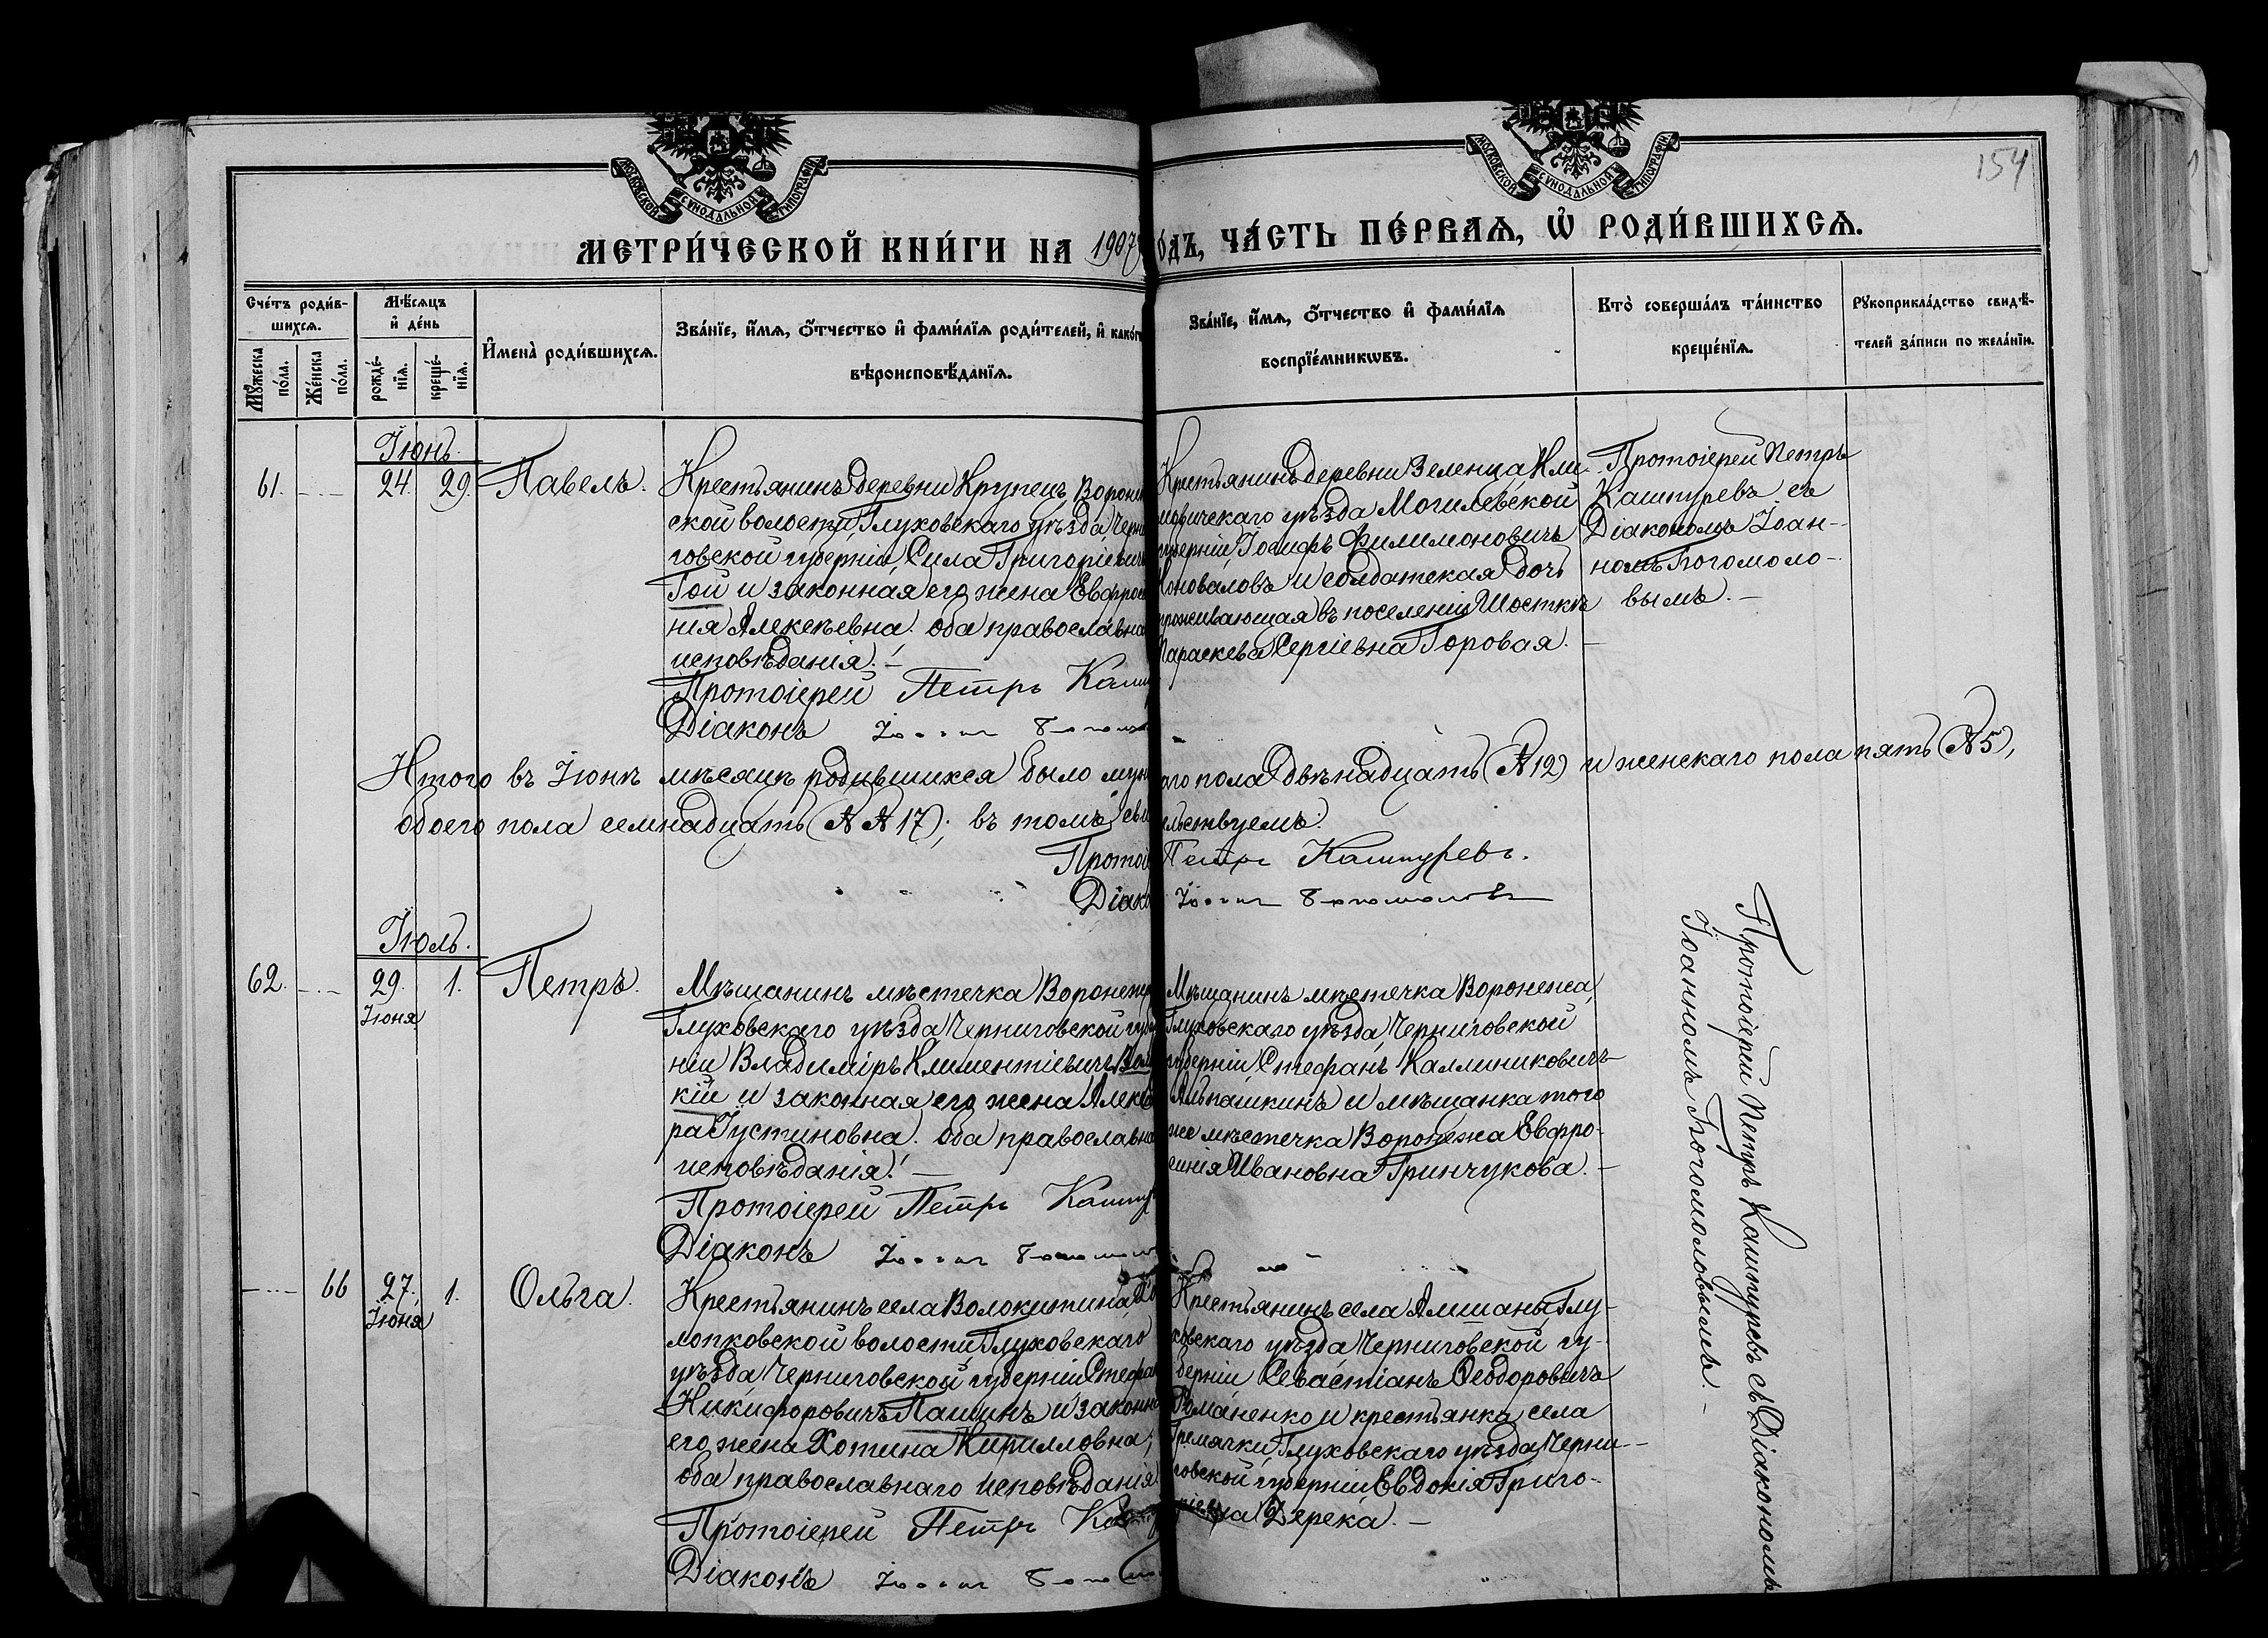 154
МОСКОВСКОЙ СѴНОДАЛЬНОЙ ТИПОГРАФІИ
МОСКОВСКОЙ СѴНОДАЛЬНОЙ ТИПОГРАФІИ
МЕТРИ́ЧЕСКОЙ КНИ́ГИ НА 1907 ОДЪ, ЧА́СТЬ ПЕ́РВАѦ, Ѡ҆ РОДИ́ВШИХСѦ.
Сче́тъ роди́в-
шихсѧ.
Мꙋжеска по́ла.
Же́нска по́ла.
Мѣ́сѧцъ
и҆ де́нь
рожде́-
нїѧ.
креще́-
нїѧ.
И҆мена̀ роди́вшихсѧ.
Зва́нїе, и҆́мѧ, ѻ҆́тчество и҆ фами́лїѧ роди́телей, и҆ како́г
вѣроисповѣ́данїѧ.
Зва́нїе, и҆́мѧ, ѻ҆́тчество и҆ фами́лїѧ
воспрїе́мникѡвъ.
Кто̀ соверша́лъ та́инство
креще́нїѧ.
Рꙋкоприкла́дство свидѣ́-
телей за́писи по жела́нїю.
Іюнь.
61. 24. 29. Павелъ.
Крестьянинъ деревни Крупецъ, Вороне
ской волости, Глуховскаго уѣзда, Черни
говской губерніи, Сила Григоріевичъ
Гой и законная его жена Евфроси
нія Алексѣевна. оба православна
исповѣданія. –
Протоіерей Петръ Каш
Діаконъ
Крестьянинъ деревни Зеленца Кли-
мовичскаго уѣзда Могилевской
губерніи Іосифъ Филимоновичъ
Коноваловъ и солдатская дочь
проживающая въ поселеніи Шосткѣ
Параскева Сергіевна Горовая. –
Протоіерей Петръ
Кашпуревъ съ
Діакономъ Іоан-
номъ Богомоло-
вымъ. –
Итого въ Іюнѣ мѣсяцѣ родившихся было муж аго пола двѣнадцать (№ 12) и женскаго пола пять (№ 5),
обоего пола семнадцать (№ № 17); въ томъ свид ѣльствуемъ:
Протоі Петръ Кашпуревъ.
Діако Іоаннъ Богомоловъ
Іюль.
62. 29. Іюня 1. Петръ.
Мѣщанинъ мѣстечка Воронеж
Глуховскаго уѣзда, Черниговской губ
ніи Владиміръ Климентіевичъ
кій и законная его жена Алекса
ра Іустиновна. оба православна
исповѣданія. –
Протоіерей Петръ Кашпу
Діаконъ
Мѣщанинъ мѣстечка Воронежа,
Глуховскаго уѣзда, Черниговской
губерніи Стефанъ Каллиниковичъ
и мѣщанка того
же мѣстечка Воронежа Евфро-
синія Ивановна Гринчукова. –
66 27. Іюня 1. Ольга.
Крестьянинъ села Волокитина,
лопковской волости, Глуховскаго
уѣзда Черниговской губерніи Стефа
Никифоровичъ Пашинъ и законн
его жена Хотина Кирилловна;
оба православнаго исповѣданія
Протоіерей Петръ
Діаконъ
Крестьянинъ села Алшаны, Глу-
ховскаго уѣзда Черниговской гу-
берніи Севастіанъ Ѳеодоровичъ
Романенко и крестьянка села
Гремячки, Глуховскаго уѣзда, Черни-
говской губерніи Евдокія Григо-
ріевна Дерека. –
Протоіерей Петръ Кашпуревъ съ Діакономъ
Іоанномъ Богомоловымъ. –